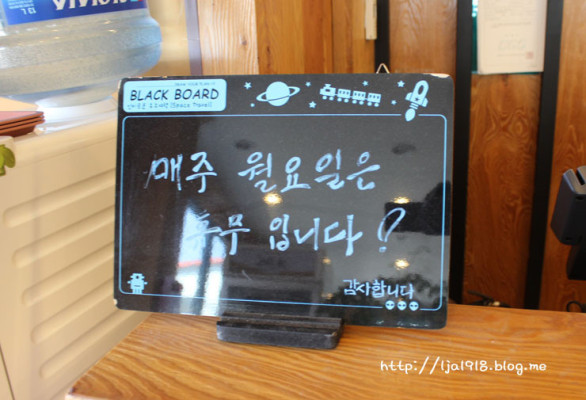 BLACK BOARD
(Space Travel)
매주 월요일은
휴무 입니다!
감사합니다
http://lja1918.blog.me